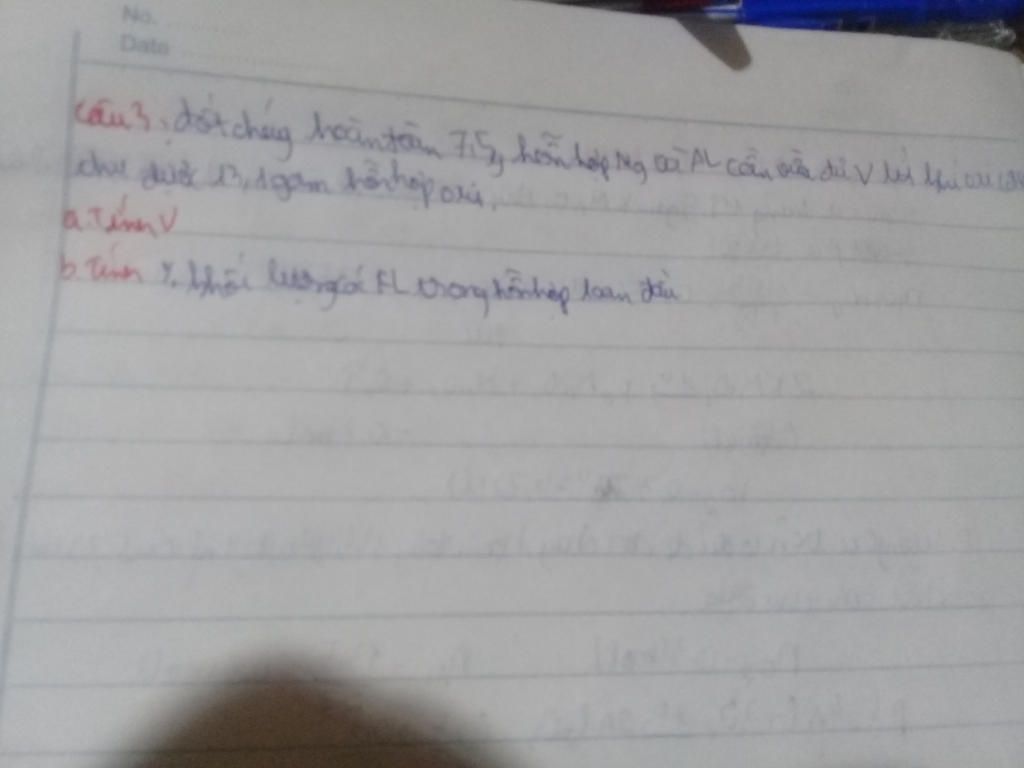 No.
Date
Câu 3. đốt cháy hoàn toàn 7,5g hỗn hợp Mg và Al cần vừa đủ V lít khí oxi
thu được 13,1 gam hỗn hợp oxit.
a. Tính V
b. Tính % khối lượng Al trong hỗn hợp ban đầu